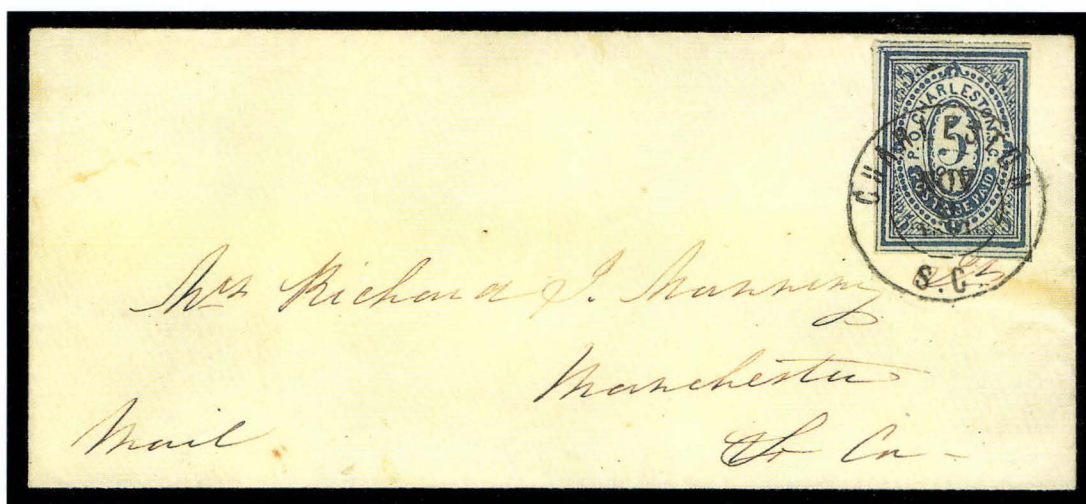 P.O. CHARLESTON, S.C.
5
POSTAGE PAID
CHARLESTON
NOV
S.C.
Mrs Richard J. Manning
Manchester
So Ca -
Mail